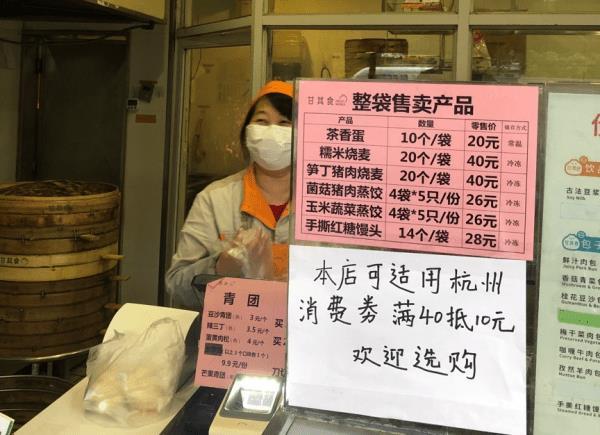 甘其食
整袋售卖产品
产品 数量 零售价 储存方式
茶香蛋 10个/袋 20元 常温
糯米烧麦 20个/袋 40元 冷冻
笋丁猪肉烧麦 20个/袋 40元 冷冻
菌菇猪肉蒸饺 4袋*5只/份 26元 冷冻
玉米蔬菜蒸饺 4袋*5只/份 26元 冷冻
手撕红糖馒头 14个/袋 28元 冷冻
本店可适用杭州
消费券 满40抵10元
欢迎选购
青团
豆沙青团 3元/个
辣三丁 3.5元/个 买
蛋黄肉松 4元/个 买
9.9元/份
芒果青团
饮品
古法豆浆
Soy Milk
包子
鲜汁肉包
Juicy Pork Bun
香菇青菜包
桂花豆沙包
梅干菜肉包
咖喱牛肉包
孜然羊肉包
Mutton Bun
手工馒头